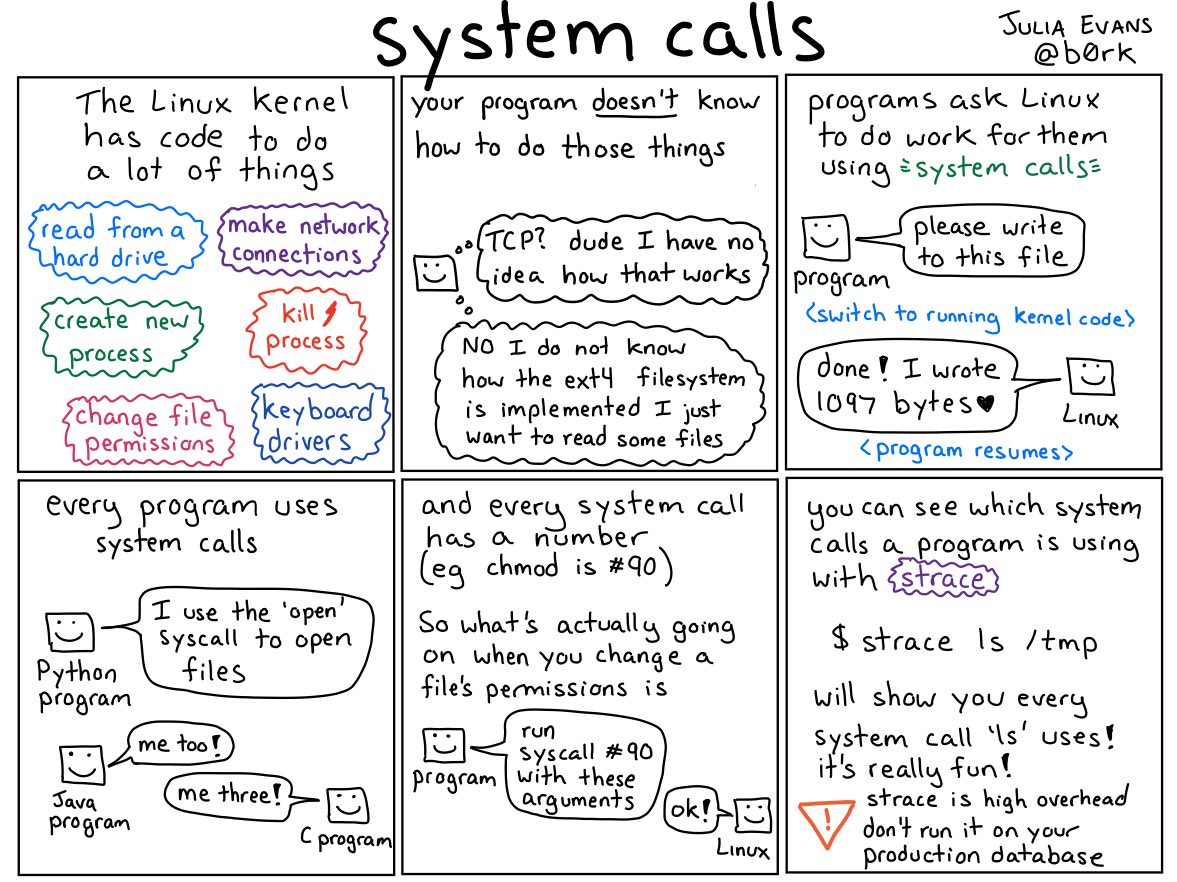 system calls
JULIA EVANS
@b0rk
The Linux kernel
has code to do
a lot of things
read from a
hard drive
make network
connections
create new
process
kill
process
change file
permissions
keyboard
drivers
your program doesn't know
how to do those things
TCP? dude I have no
idea how that works
NO I do not know
how the ext4 filesystem
is implemented I just
want to read some files
programs ask Linux
to do work for them
using system calls
please write
to this file
program
<switch to running kernel code>
done! I wrote
1097 bytes♥
Linux
<program resumes>
every program uses
system calls
I use the 'open'
syscall to open
files
Python
program
me too!
Java
program
me three!
C program
and every system call
has a number
(eg chmod is #90)
So what's actually going
on when you change a
file's permissions is
run
syscall #90
with these
arguments
program
ok!
Linux
you can see which system
calls a program is using
with strace
$ strace ls /tmp
will show you every
system call 'ls' uses!
it's really fun!
! strace is high overhead
don't run it on your
production database